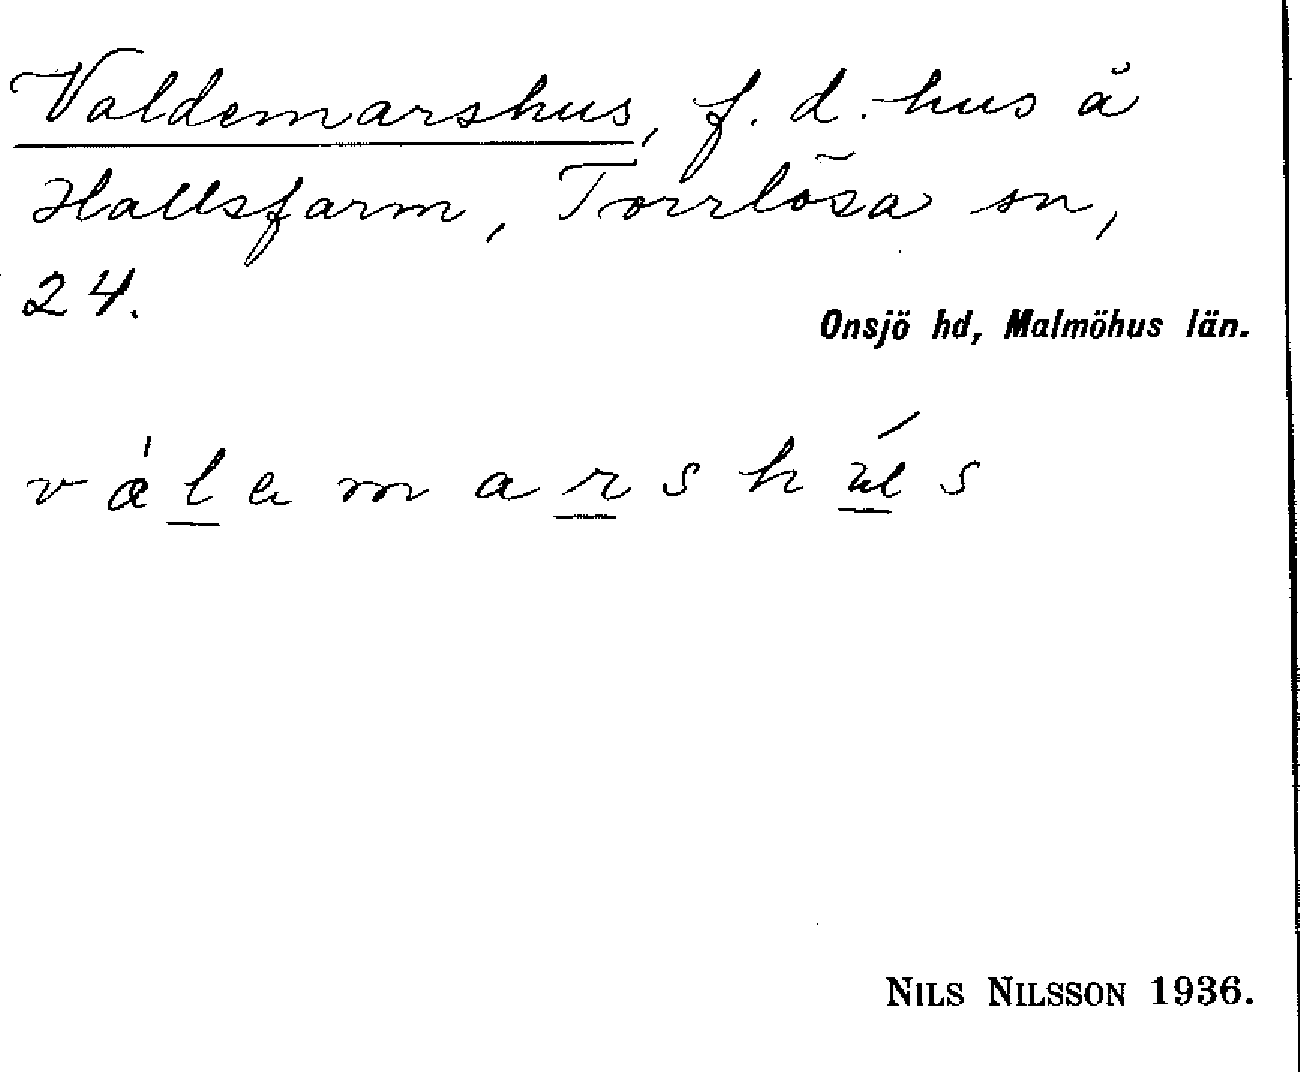 Valdemarshus, f. d. hus å
Hallsfarm, Torrlösa sn,
24.
Onsjö hd, Malmöhus län.
NILS NILSSON 1936.